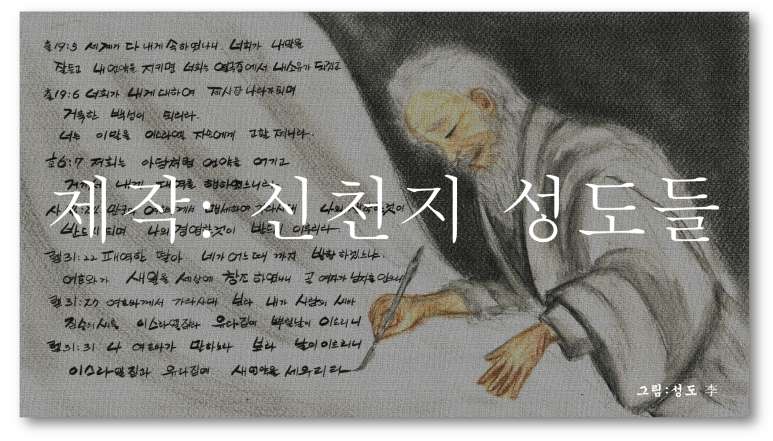 출19:5 세계가 다 내게 속하였나니 너희가 내 말을
잘 듣고 내 언약을 지키면 너희는 열국 중에서 내 소유가 되겠고
출19:6 너희가 내게 대하여 제사장 나라가 되며
거룩한 백성이 되리라.
너는 이 말을 이스라엘 자손에게 고할지니라.
호6:7 저희는 아담처럼 언약을 어기고
거기서 내게 패역을 행하였느니라
제작: 신천지 성도들
나의 경영한 것이 반드시 이루리라
렘31:22 패역한 딸아 네가 어느 때까지 방황하겠느냐.
여호와가 새 일을 세상에 창조하였나니 곧 여자가 남자를
렘31:27 여호와께서 가라사대 보라 내가 사람의 씨와
짐승의 씨를 이스라엘 집과 유다 집에 뿌릴 날이 이르리니
렘31:31 나 여호와가 말하노라 보라 날이 이르리니
이스라엘 집과 유다 집에 새 언약을 세우리라
그림:성도 李